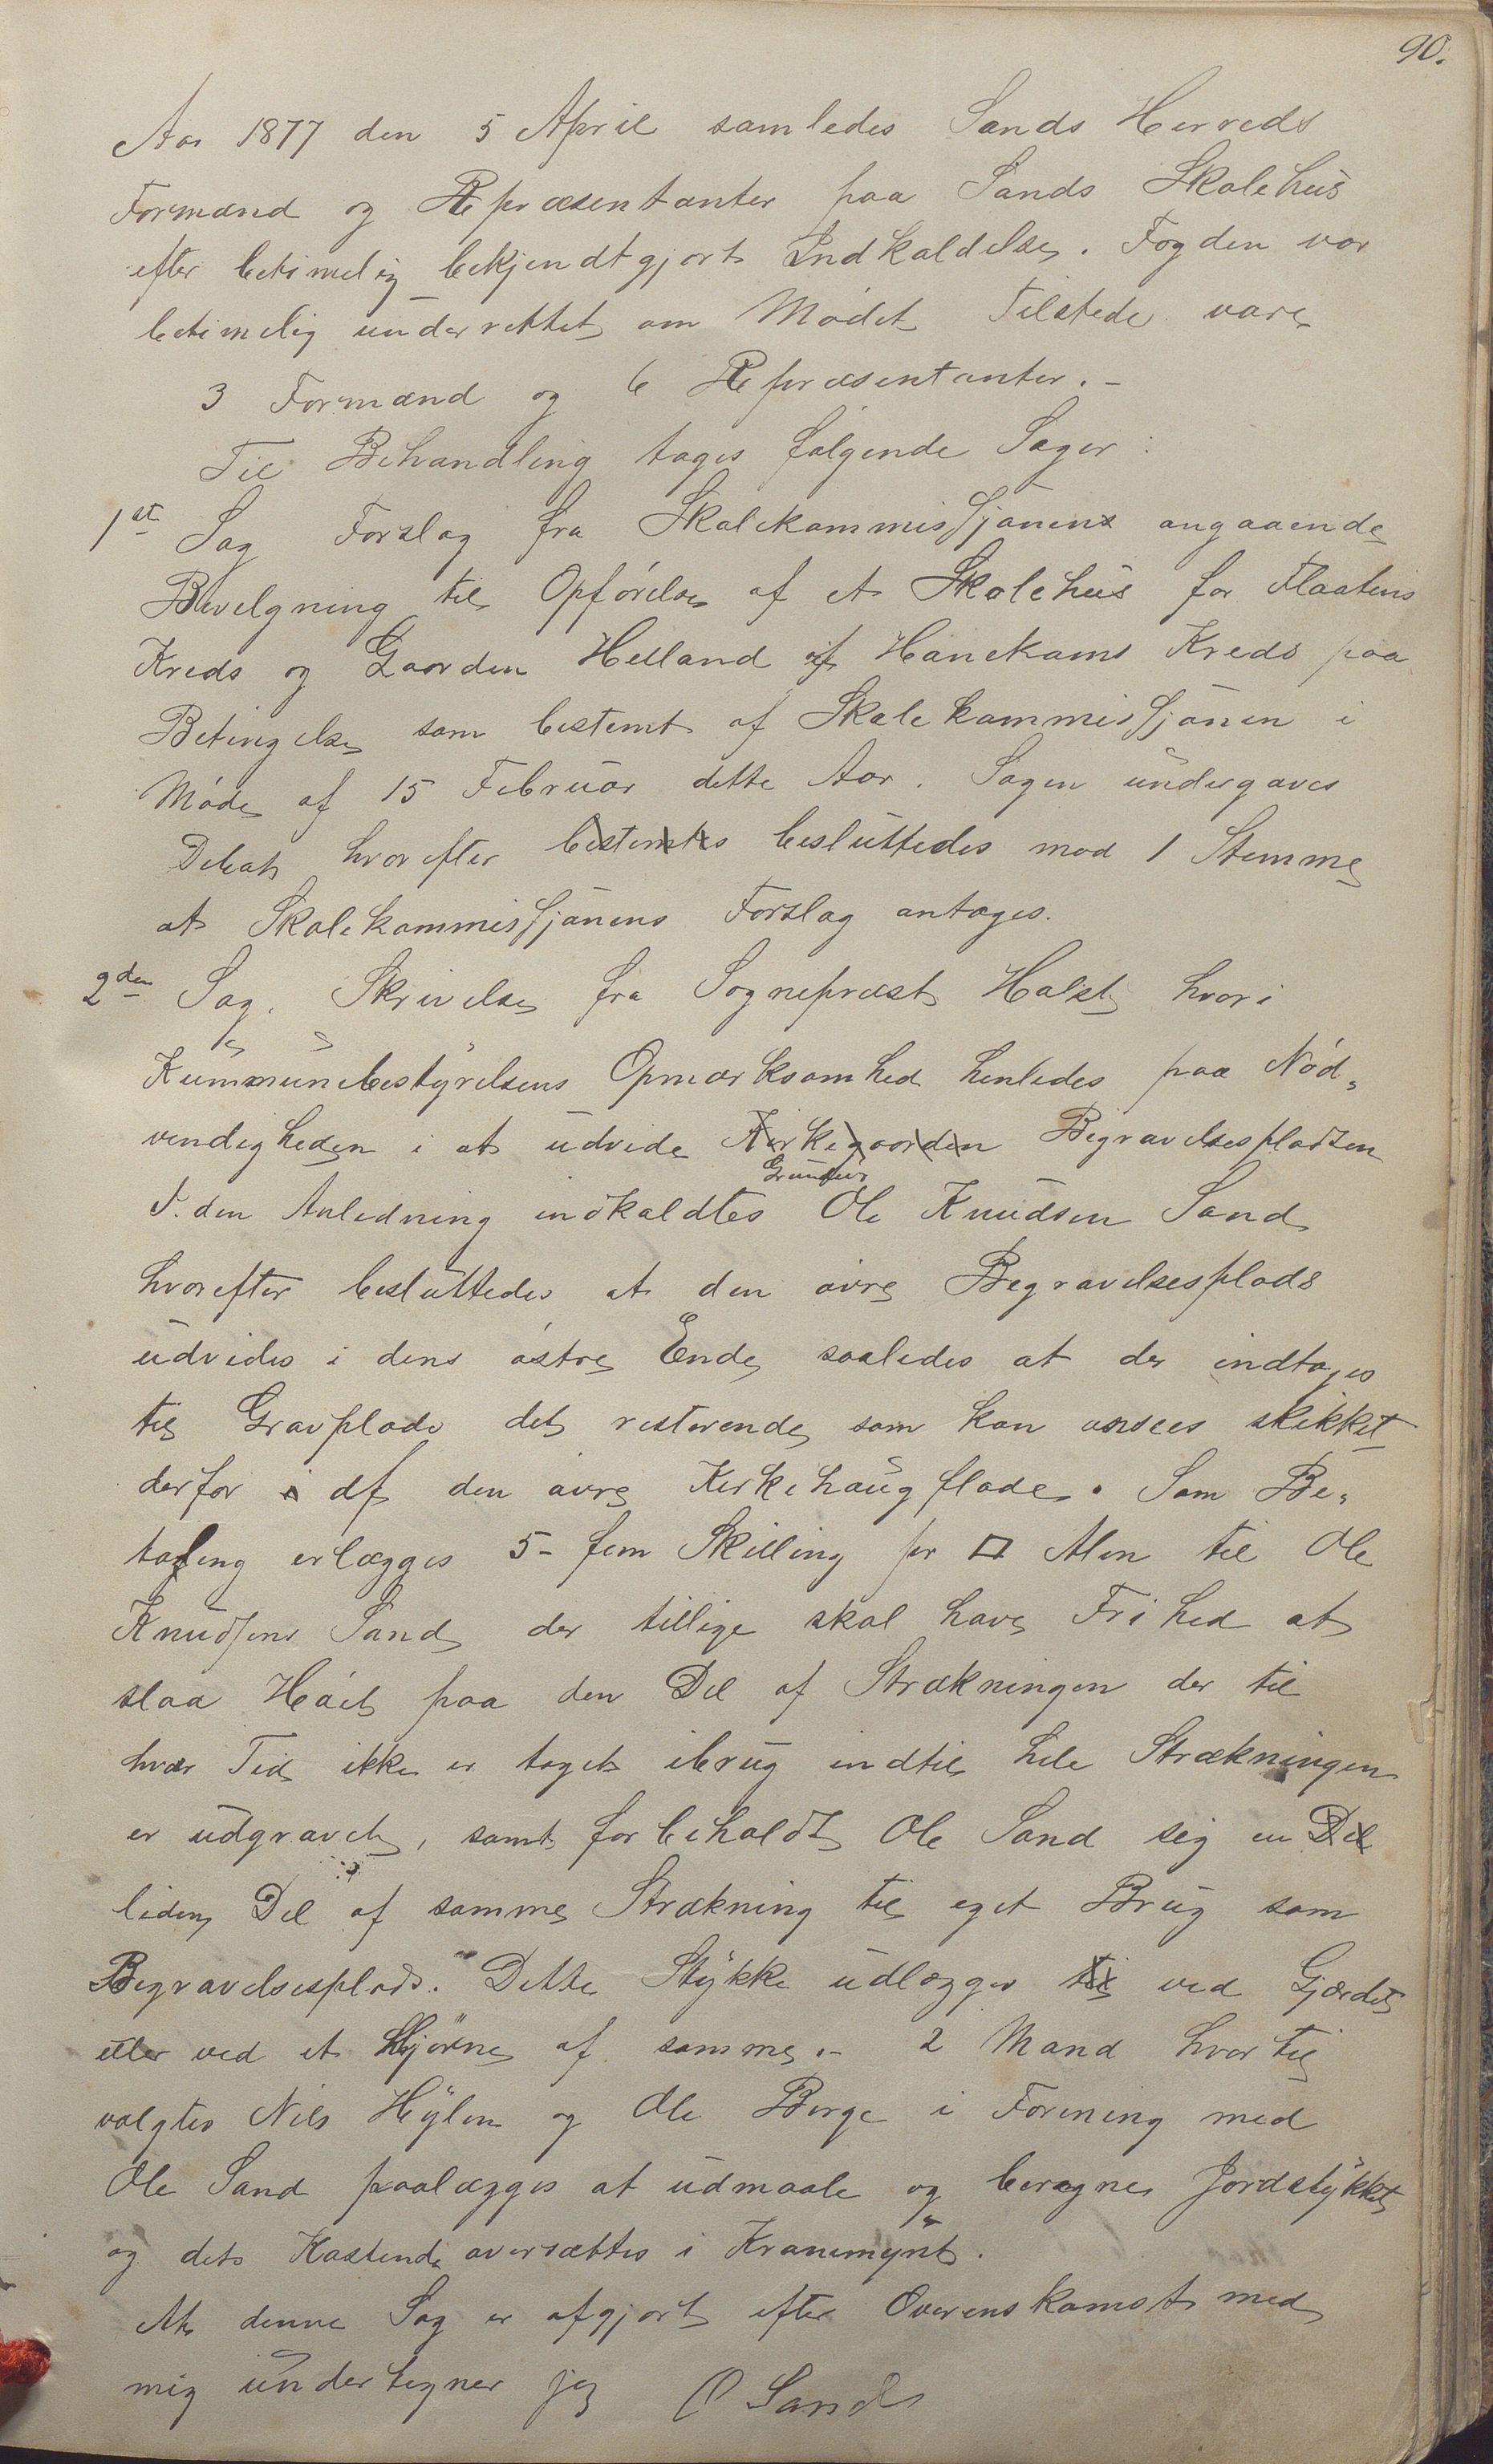 90.
Aar 1877 den 5 April samledes Sands Herreds
Formænd og Repræsentanter paa Sands Skolehus
efter betimelig bekjendtgjort Indkaldelse. Fogden var
betimelig underrettet om Mødet Tilstede vare
3 Formænd og 6 Repræsentanter.-
Til Behandling toges følgende Sager:
1ste Sag Forslag fra Skolekommissjonens angaaende
Bevilgning til Opførelse af et Skolehus for Flaatens
Kreds og Gaarden Helland af Hanekams Kreds paa
Betingelse som bestemt af Skolekommissjonen i
Møde af 15 Februar dette Aar. Sagen undergaves
Debat hvorefter bestemtes besluttedes mod 1 Stemme
at Skolekommissjonens Forslag antages.
2den Sag. Skrivelse fra Sognepræst Halst hvori
Kummunebestyrelsens Opmærksomhed henledes paa Nød-
vendigheden i at udvide Kirkegaarden Begravelsespladsen
Grundeier
I den Anledning indkaldtes Ole Knudsen Sand
hvorefter besluttedes at den øvre Begravelsesplads
udvides i dens østre Ende saaledes at der indtages
til Gravplads det resterende som kan ansees skikket
derfor i af den øvre Kirkehaugflade. Som Be-
taling erlægges 5- fem Skilling pr □ Alen til Ole
Knudsens Sand der tillige skal have Frihed at
slaa Høiet paa den Del af Strækningen der til
hver Tid ikke er taget ibrug indtil hele Strækningen
er udgravet, samt forbeholdt Ole Sand sig en Del
liden Del af samme Strækning til eget Brug som
Begravelsesplads. Dette Stykke udlægges til ved Gjærdet
eller ved et Hjørne af samme.- 2 Mand hvortil
valgtes Nils Hylen og Ole Berge i Forening med
Ole Sand paalægges at udmaale og beregne Jordstykket
og dets Kostende oversættes i Kronemynt.
At denne Sag er afgjort efter Overenskomst med
mig undertegner jeg O Sand